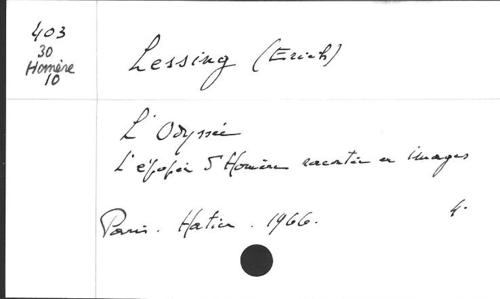 403
30
Homère
10
Lessing (Erich)
L'Odyssée
L'épopée d'Homère racontée en images
Paris. Hatier. 1966.
4.